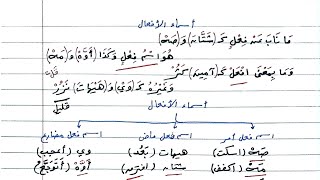 أسماء الأفعال
مَا نَابَ عَنْ فِعْلٍ كَـ(شَتَّانَ) وَ(صَهْ)
هُوَ اسْمُ فِعْلٍ وَكَذَا (أَوَّهْ) وَ(مَهْ)
وَمَا بِمَعْنَى افْعَلْ كَـ(آمِينَ) كَثُرْ
وَغَيْرُهُ كَـ(وَيْ) وَ(هَيْهَاتَ) نَزُرْ
قَلَّ
قليل
أسماء الأفعال
اسم فعل أمر اسم فعل ماض اسم فعل مضارع
صَهْ (اسكت) هيهات (بَعُدَ) وي (أعجب)
مَهْ (اكفف) شتانَ (افترق) أَوَّهْ (أتوجع)